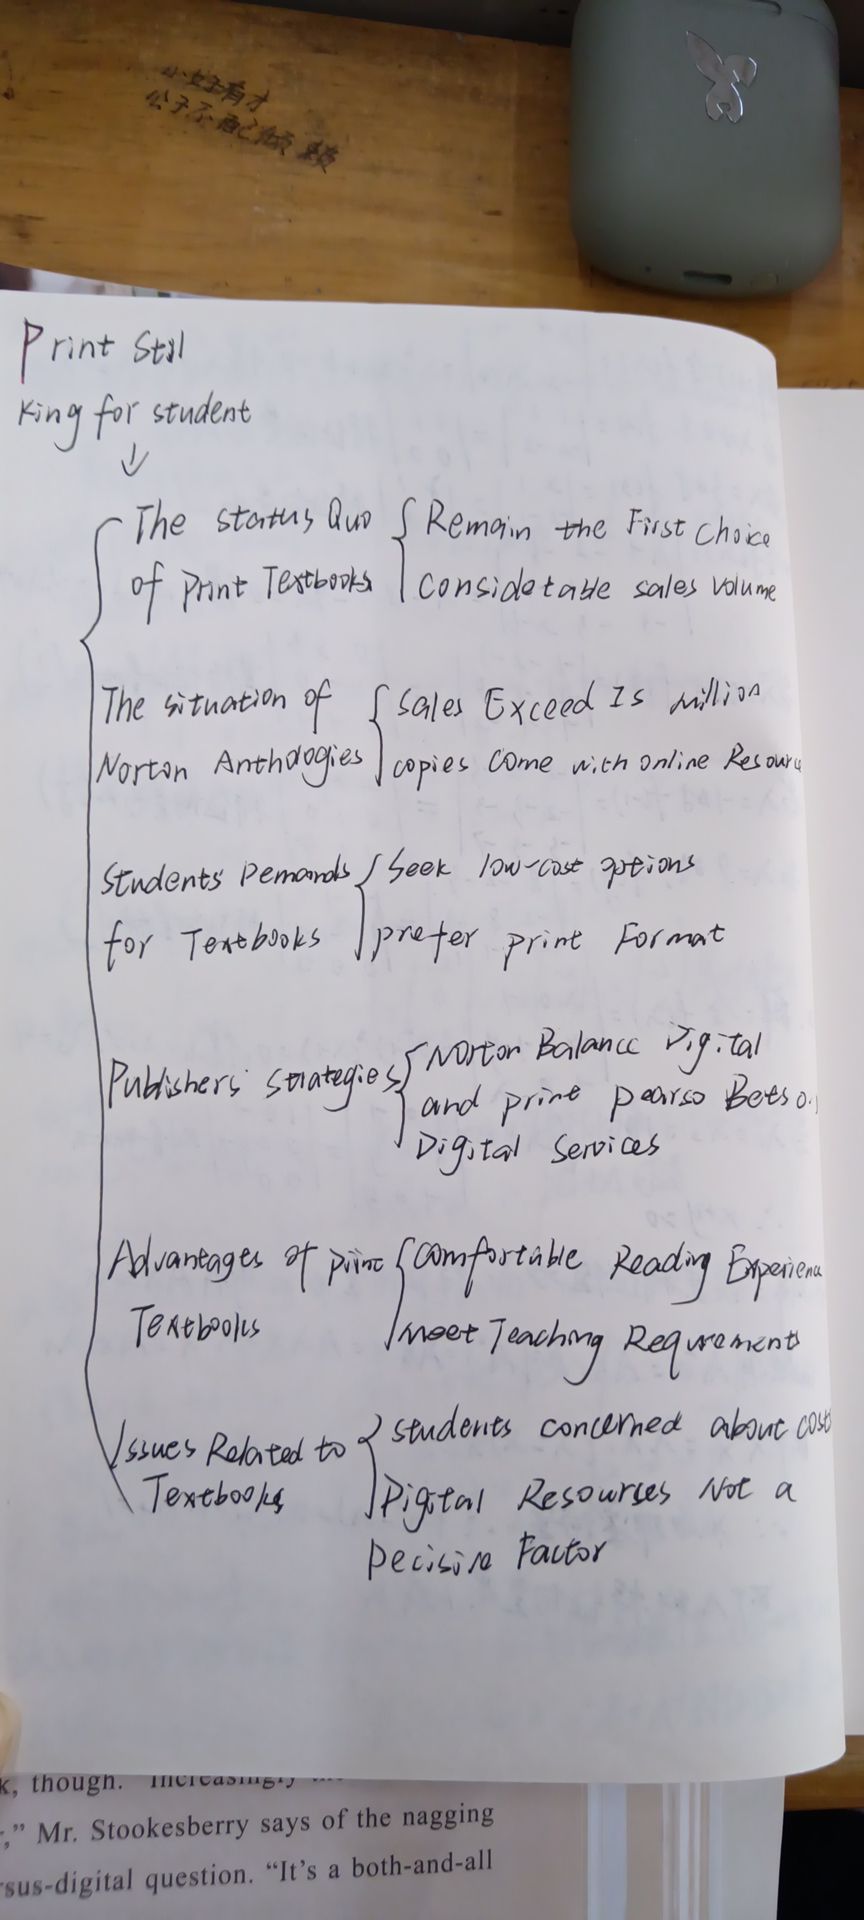 小女子有才
公子不配倾
Print Still
King for student
The status Quo
of print Textbooks
Remain the First choice
considetable sales volume
The situation of
Norton Anthologies
sales Exceed Is million
copies come with online Resource
Students' Demands
for Textbooks
Seek low-cost options
prefer print Format
Publishers' strategies
Norton Balance Digital
and print pearso Bets o
Digital Services
Advantages of print
Textbooks
comfortable Reading Experience
meet Teaching Requrements
Issues Related to
Textbooks
students concerned about cost
Digital Resourses Not a
Decisive Factor
k, though. "Increasingly
," Mr. Stookesberry says of the nagging
rsus-digital question. "It's a both-and-all